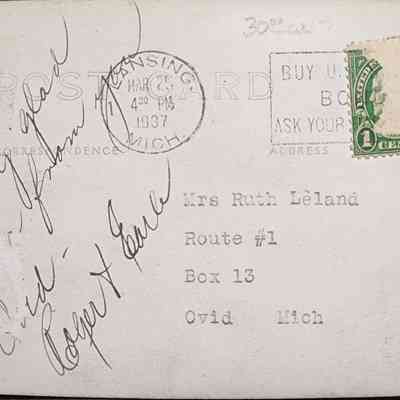 30
POST CARD
CORRESPONDENCE
ADDRESS
LANSING,
MAR 25
4 30 PM
1937
MICH.
BUY U.
BO
ASK YOUR
1
glad
from you
Ovid -
Roger H Earle
Mrs Ruth Lèland
Route #1
Box 13
Ovid Mich